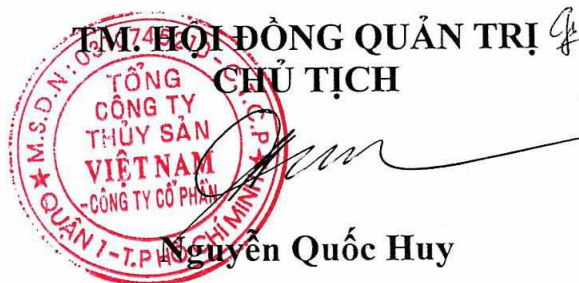 TM. HỘI ĐỒNG QUẢN TRỊ
CHỦ TỊCH
TỔNG
CÔNG TY
THỦY SẢN
VIỆT NAM
-CÔNG TY CỔ PHẦN
QUẬN 1-T.P HỒ CHÍ MINH
Nguyễn Quốc Huy